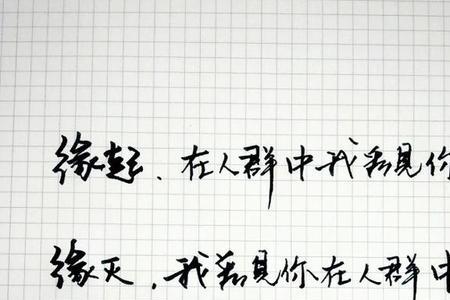 缘起、在人群中我看见你
缘灭，我看见你在人群中